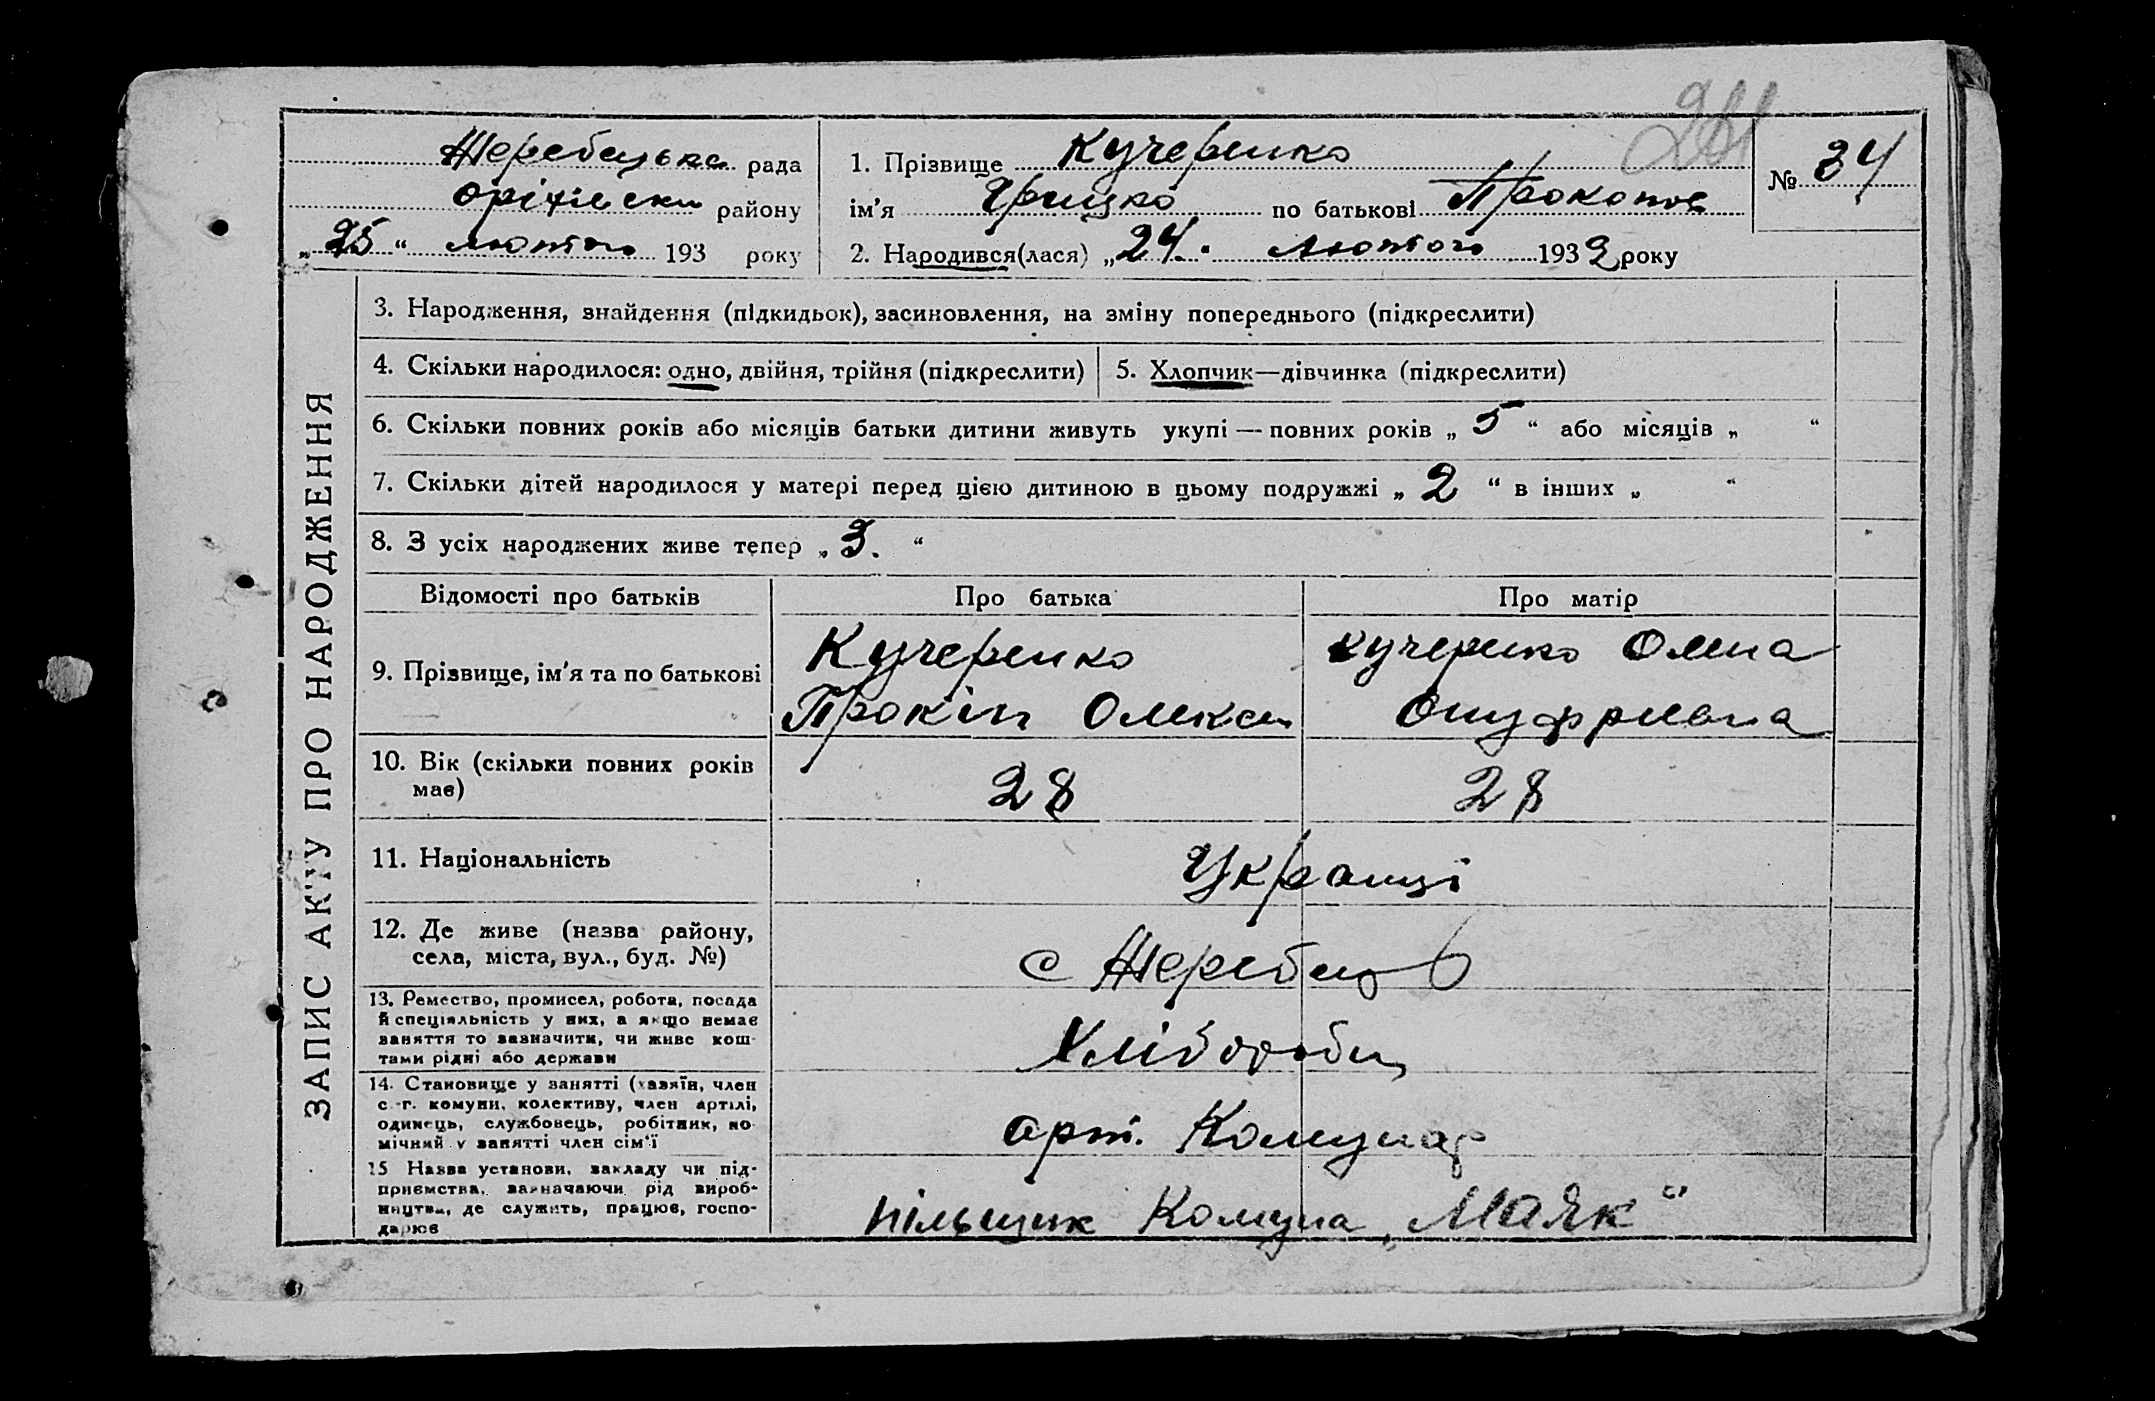 Жеребецька рада
Оріхівськ району
„25“ лютого 193 року
1. Прізвище Кучеренко
ім'я Грицко по батькові Прокопов
2. Народився(лася) „24“ Лютого 1932 року
№ 34
ЗАПИС АКТУ ПРО НАРОДЖЕННЯ
3. Народження, знайдення (підкидьок), засиновлення, на зміну попереднього (підкреслити)
4. Скільки народилося: одно, двійня, трійня (підкреслити)
5. Хлопчик—дівчинка (підкреслити)
6. Скільки повних років або місяців батьки дитини живуть укупі — повних років „5“ або місяців „ “
7. Скільки дітей народилося у матері перед цією дитиною в цьому подружжі „2“ в інших „ “
8. З усіх народжених живе тепер „3.“
Відомості про батьків Про батька Про матір
9. Прізвище, ім'я та по батькові
Кучеренко
Прокіп Олексі
Кучеренко Олена
Онуфрієвна
10. Вік (скільки повних років
має)
28 28
11. Національність
Українці
12. Де живе (назва району,
села, міста, вул., буд. №)
с Жеребець
13. Ремество, промисел, робота, посада
й спеціяльність у них, а якщо немає
заняття то зазначити, чи живе кош-
тами рідні або держави
Хлібороби
14. Становище у занятті (хазяїн, член
с.-г. комуни, колективу, член артілі,
одинець, службовець, робітник, по-
мічний у занятті член сім'ї
арт. Комунар
15 Назва установи, закладу чи під-
приємства, зазначаючи рід вироб-
ництва, де служить, працює, госпо-
дарює
Комуна „Маяк“